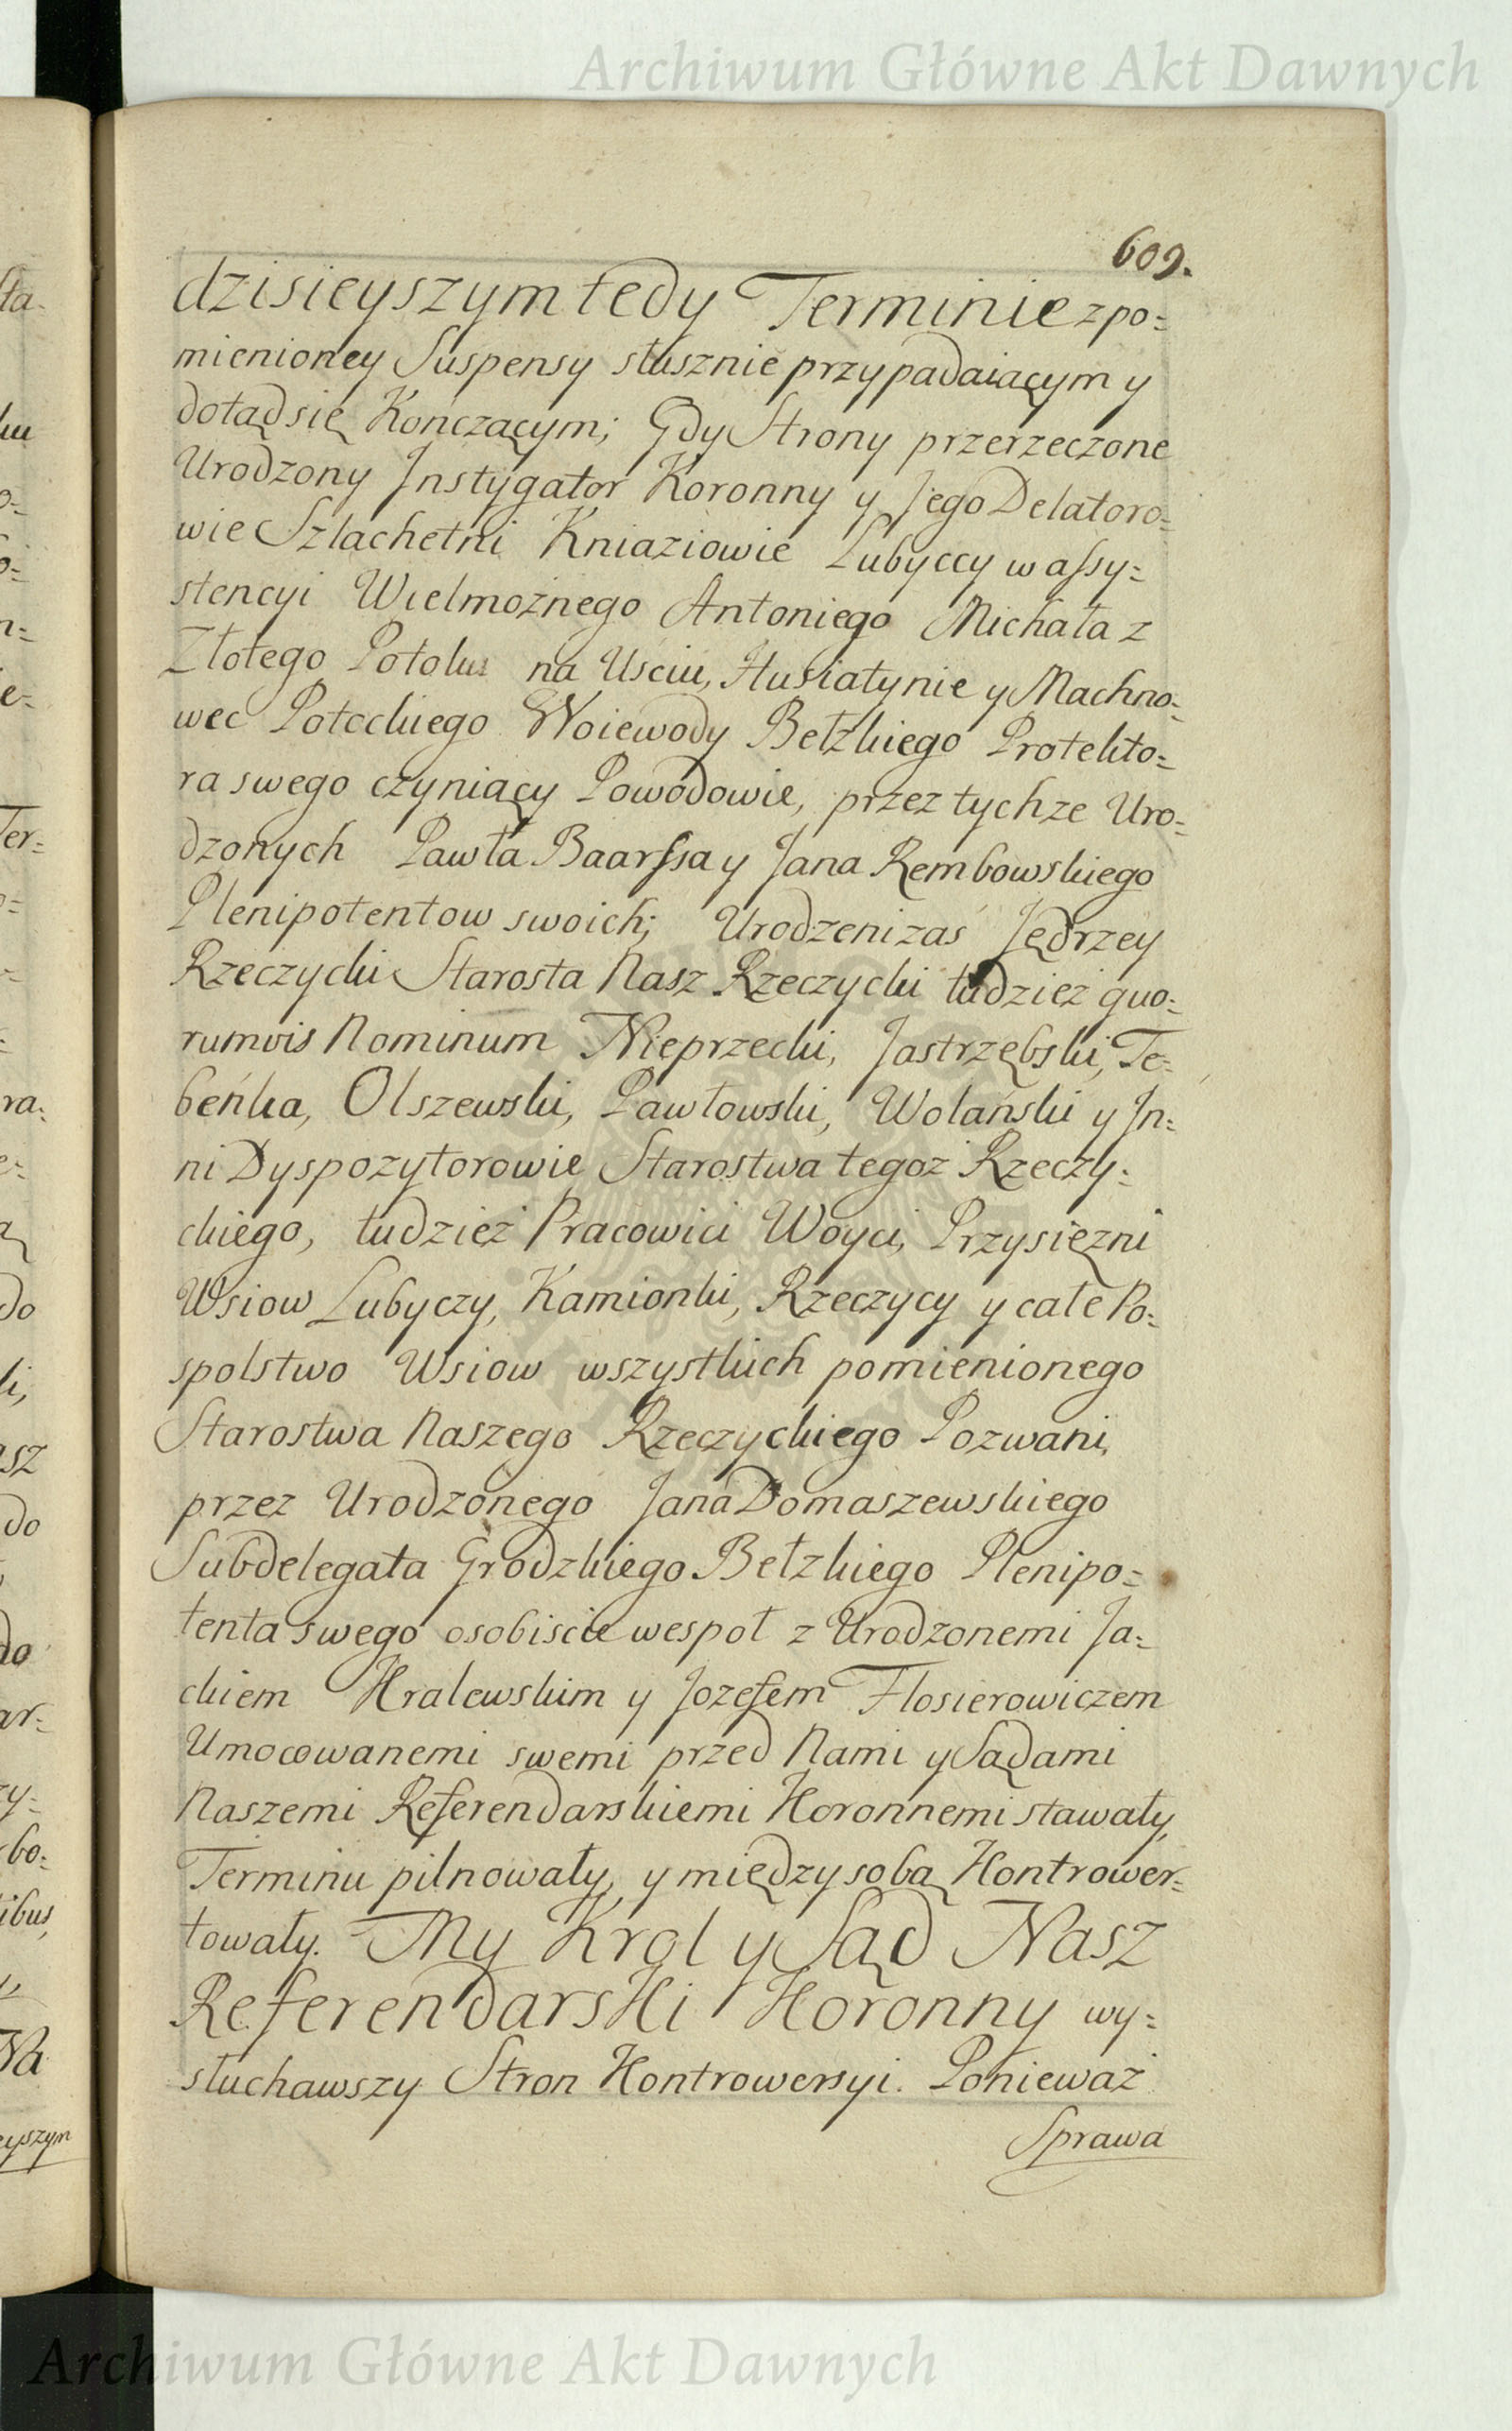 Archiwum Główne Akt Dawnych
609.
dzisieyszym tedy Terminie z po=
mienioney Suspensy słusznie przypadaiącym y
dotąd się Konczącym; Gdy Strony przerzeczone
Urodzony Instygator Koronny y Jego Delatoro=
wie Szlachetni Kniaziowie Lubyccy w assy=
stencyi Wielmożnego Antoniego Michała z
Złotego Potoku na Usciu, Husiatynie y Machno=
wec Potockiego Woiewody Bełzkiego Protekto=
ra swego czyniący Powodowie, przez tychże Uro=
dzonych Pawła Baarssa y Jana Rembowskiego
Plenipotentow swoich; Urodzeni zaś Jędrzey
Rzeczycki Starosta Nasz Rzeczycki tudzież quo=
rumvis Nominum Nieprzecki, Jastrzębski, Te=
beńka, Olszewski, Pawłowski, Wolański y In=
ni Dyspozytorowie Starostwa tegoż Rzeczy=
ckiego, tudzież Pracowici Woyci, Przysiężni
Wsiow Lubyczy, Kamionki, Rzeczycy y całe Po=
spolstwo Wsiow wszystkich pomienionego
Starostwa Naszego Rzeczyckiego Pozwani,
przez Urodzonego Jana Domaszewskiego
Subdelegata Grodzkiego Bełzkiego Plenipo=
tenta swego osobiscie wespoł z Urodzonemi Ja=
ckiem Kralewskim y Jozefem Flosierowiczem
Umocowanemi swemi przed Nami y Sądami
Naszemi Referendarskiemi Koronnemi stawały,
Terminu pilnowały, y między sobą Kontrower=
towały. My Krol y Sąd Nasz
Referendarski Koronny wy=
słuchawszy Stron Kontrowersyi. Ponieważ
Sprawa
Archiwum Główne Akt Dawnych